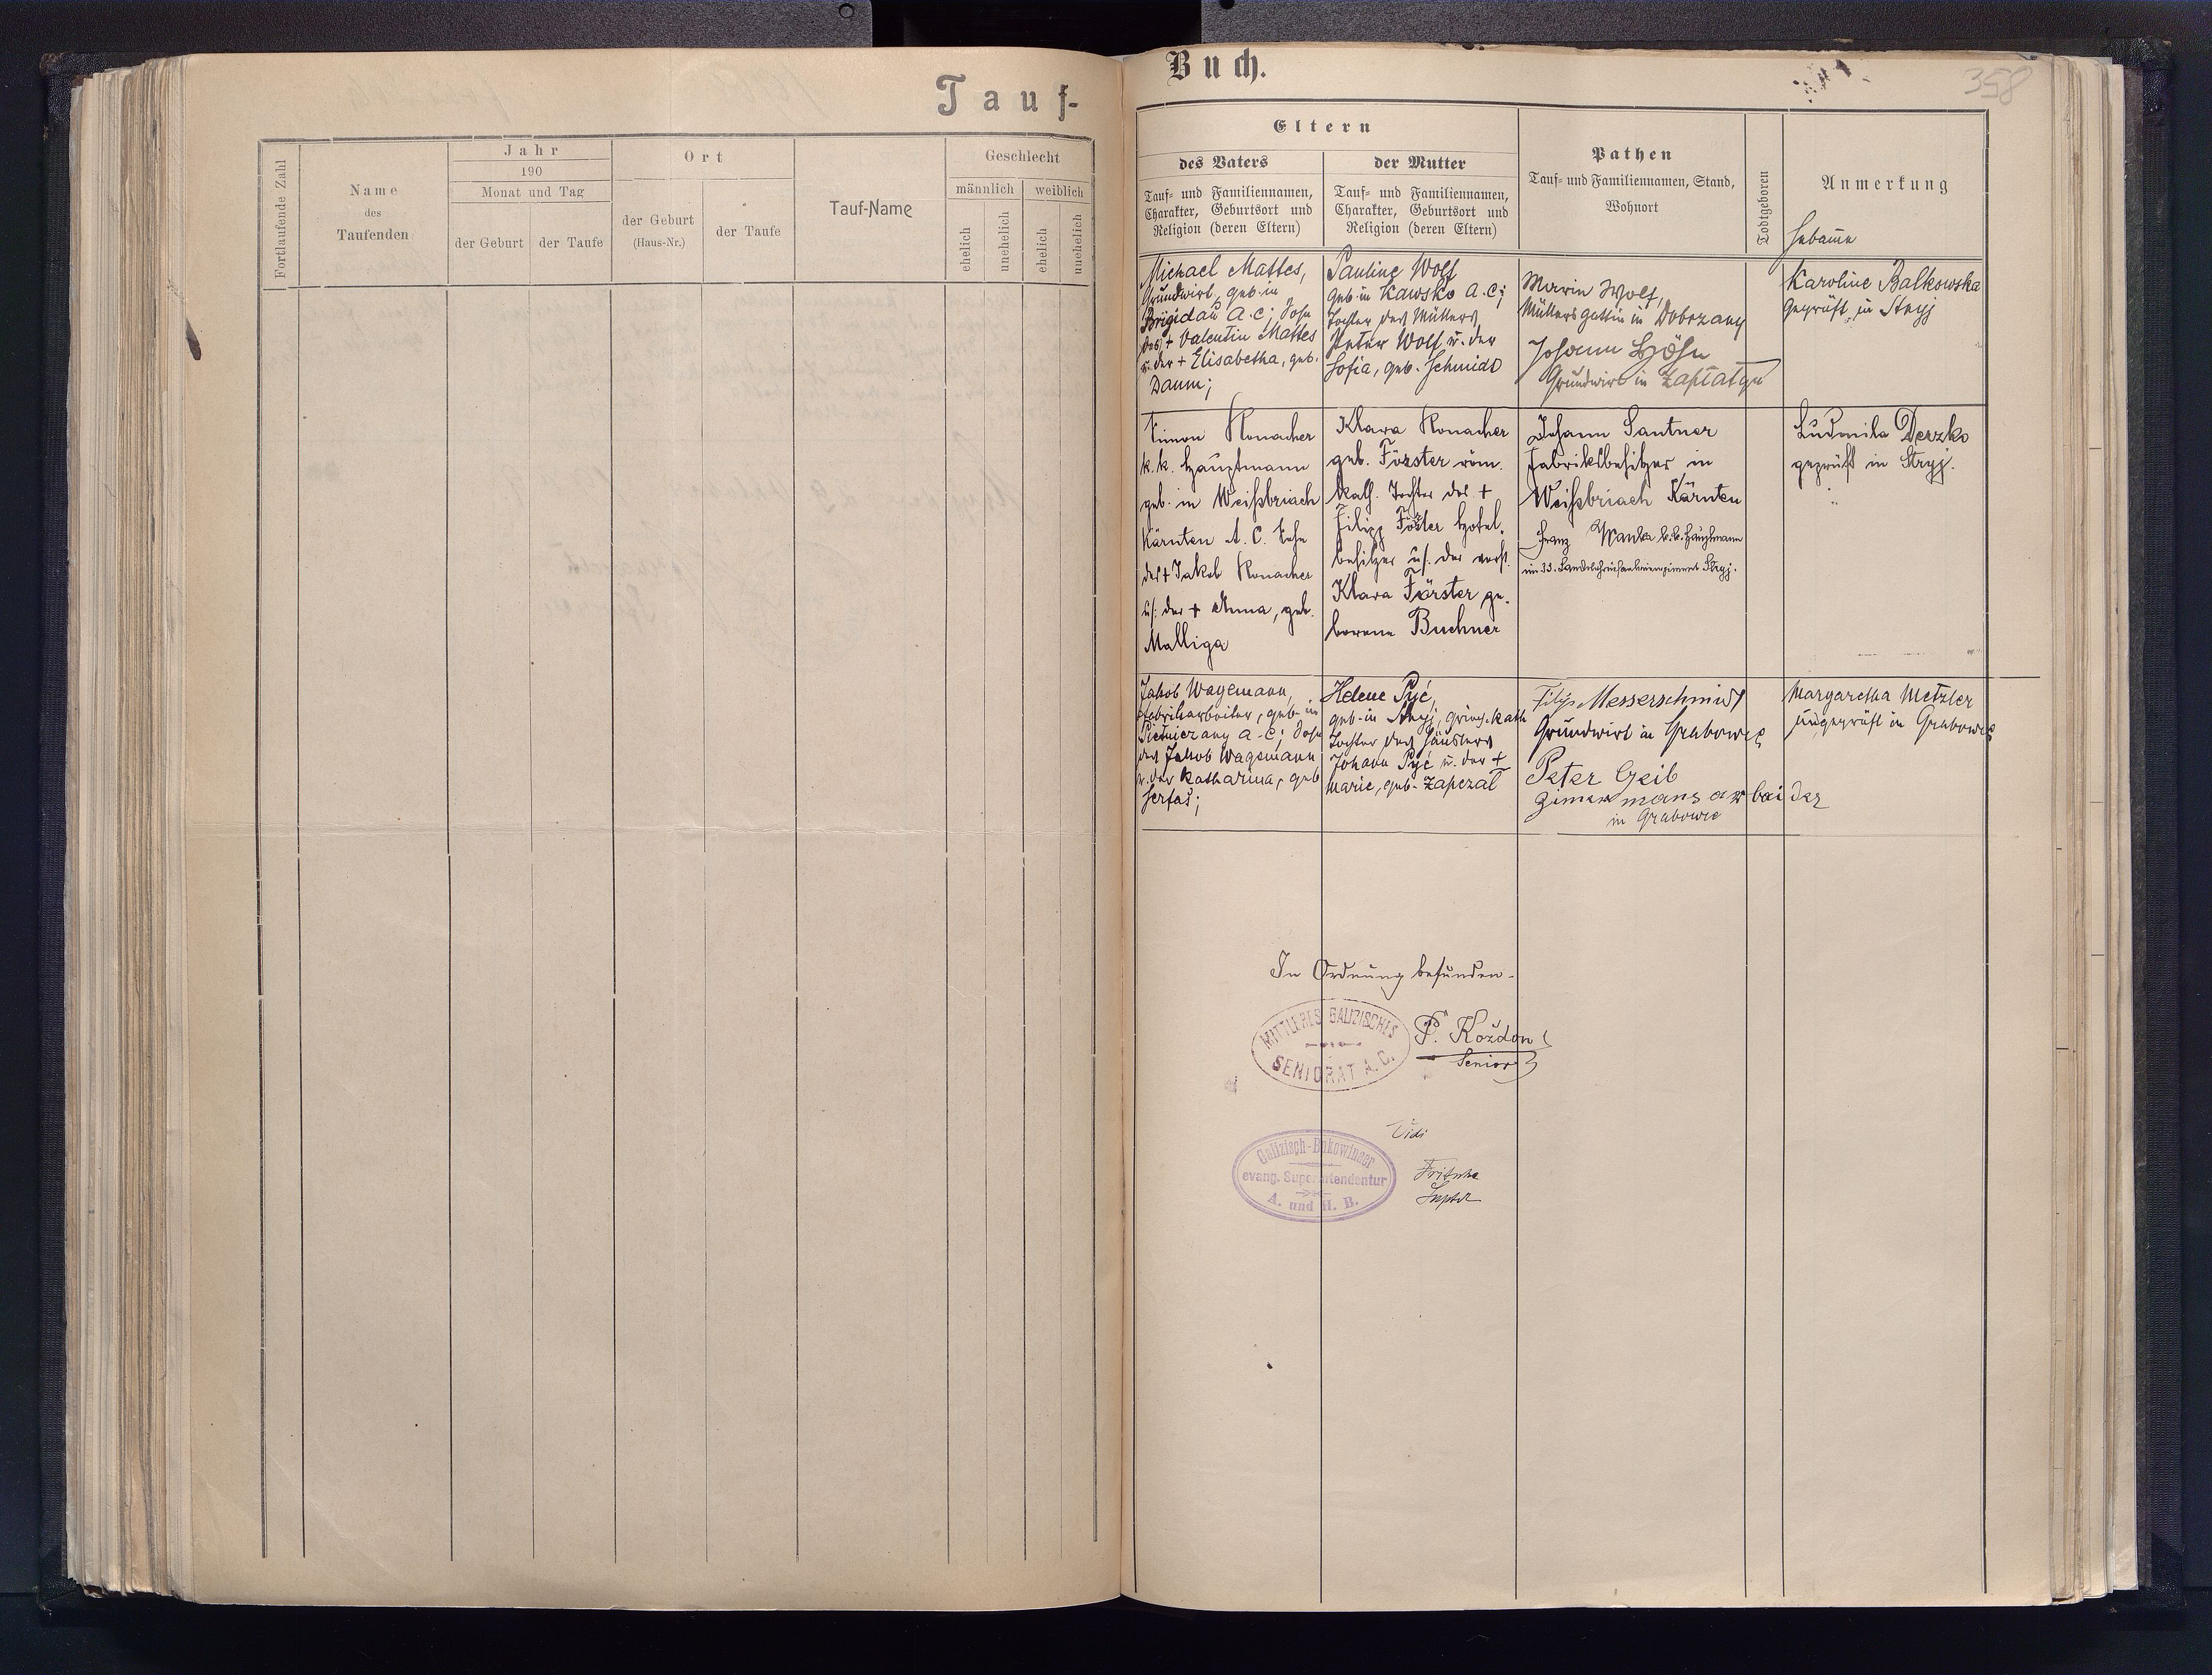 Tauf-
Fortlaufende Zahl
Name
des
Taufenden
Jahr
190
Monat und Tag
der Geburt
der Taufe
Ort
der Geburt
(Haus-Nr.)
der Taufe
Tauf-Name
Geschlecht
männlich
weiblich
ehelich
unehelich
ehelich
unehelich
Buch.
358
Eltern
des Vaters
Tauf- und Familiennamen,
Charakter, Geburtsort und
Religion (deren Eltern)
der Mutter
Tauf- und Familiennamen,
Charakter, Geburtsort und
Religion (deren Eltern)
Pathen
Tauf- und Familiennamen, Stand,
Wohnort
Todtgeboren
Anmerkung
Hebame
Michael Mattes,
Grundwirt, geb. in
Brigidau A.C; Sohn
des + Valentin Mattes
u. der + Elisabetha, geb.
Daum;
Pauline Wolf
geb. in Kawsko A.C;
Tochter des Müllers
Peter Wolf u. der
Sofia, geb. Schmidt
Marie Wolf,
Müllersgattin in Dobrzany
Johann Höhn
Grundwirt in Zaplatyn
Karoline Balkowska
geprüft in Stryj
Simon Ronacher
k.k. Hauptmann
geb. in Weißbriach
Kärnten A. C. Sohn
des + Jakob Ronacher
u. der + Anna, geb.
Malliga
Klara Ronacher
geb. Förster röm.
kath. Tochter des +
Filipp Förster Hotel.
besitzer u. der verst.
Klara Förster ge.
borene Buchner
Johann Santner
Fabriksbesitzer in
Weißbriach Kärnten
Franz Wanka k.k. Hauptmann
im 33. Landwehrinfanterieregiment Stryj.
Ludmila Derzko
geprüft in Stryj.
Jakob Wagemann,
Fabriksarbeiter, geb. in
Pietniczany A.C; Sohn
des Jakob Wagemann
u. der Katharina, geb
Serfas;
Helene Pyć,
geb. in Stryj, griech. kath
Tochter des Häuslers
Johann Pyć u. der +
Marie, geb. Zapczal
Filip Messerschmidt
Grundwirt in Grabowce
Peter Geib
Zimermans arbeider
in Grabowce
Margaretha Metzler
ungeprüft in Grabowce
In Ordnung befunden.
MITTLERES GALIZISCHES
SENIORAT A.C.
P. Kożdoń
Senior
Vidi
Galizisch-Bukowinaer
evang. Superintendentur
A. und H. B.
Fritsche
Suptdt